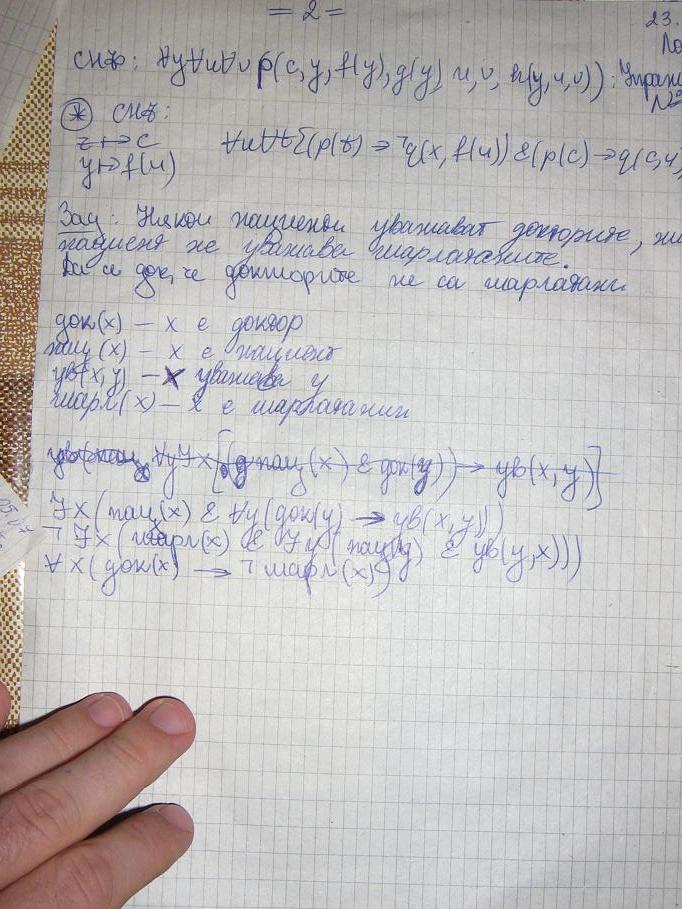 = 2 =
23.
СНФ: ∀y∀u∀v p(c, y, f(y), g(y) u, v, h(y, u, v)); Упраж
№
⊛ СНФ:
z ↦ c ∀u∀t[(p(t) → ¬q(x, f(u)) & (p(c) → q(c, u)
y ↦ f(u)
Зад: Някои пациенти уважават докторите, ни
пациент не уважава шарлатаните.
Да се док, че докторите не са шарлатани
док(x) — x е доктор
пац(x) — x е пациент
ув(x, y) — x уважава y
шарл(x) — x е шарлатанин
∀y∃x[(пац(x) & док(y)) → ув(x, y)]
∃x(пац(x) & ∀y(док(y) → ув(x, y)))
¬∃x(шарл(x) & ∃y(пац(y) & ув(y, x)))
∀x(док(x) → ¬шарл(x))